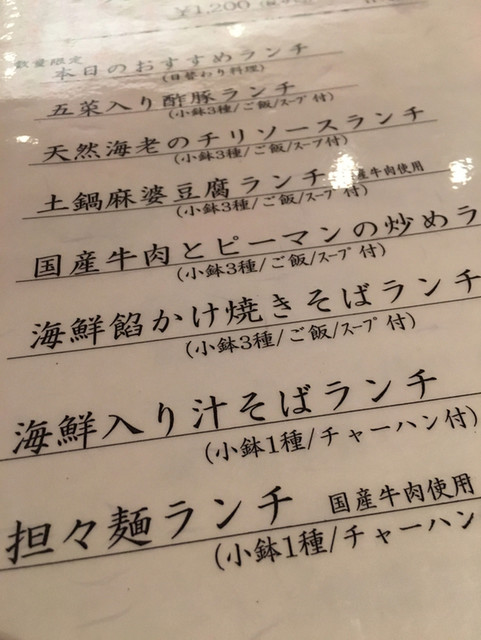 ¥1,200
数量限定
本日のおすすめランチ
(日替わり料理)
五菜入り酢豚ランチ
(小鉢3種/ご飯/スープ付)
天然海老のチリソースランチ
(小鉢3種/ご飯/スープ付)
土鍋麻婆豆腐ランチ 産牛肉使用
(小鉢3種/ご飯/スープ付)
国産牛肉とピーマンの炒めラ
(小鉢3種/ご飯/スープ付)
海鮮餡かけ焼きそばランチ
(小鉢3種/ご飯/スープ付)
海鮮入り汁そばランチ
(小鉢1種/チャーハン付)
担々麺ランチ 国産牛肉使用
(小鉢1種/チャーハン